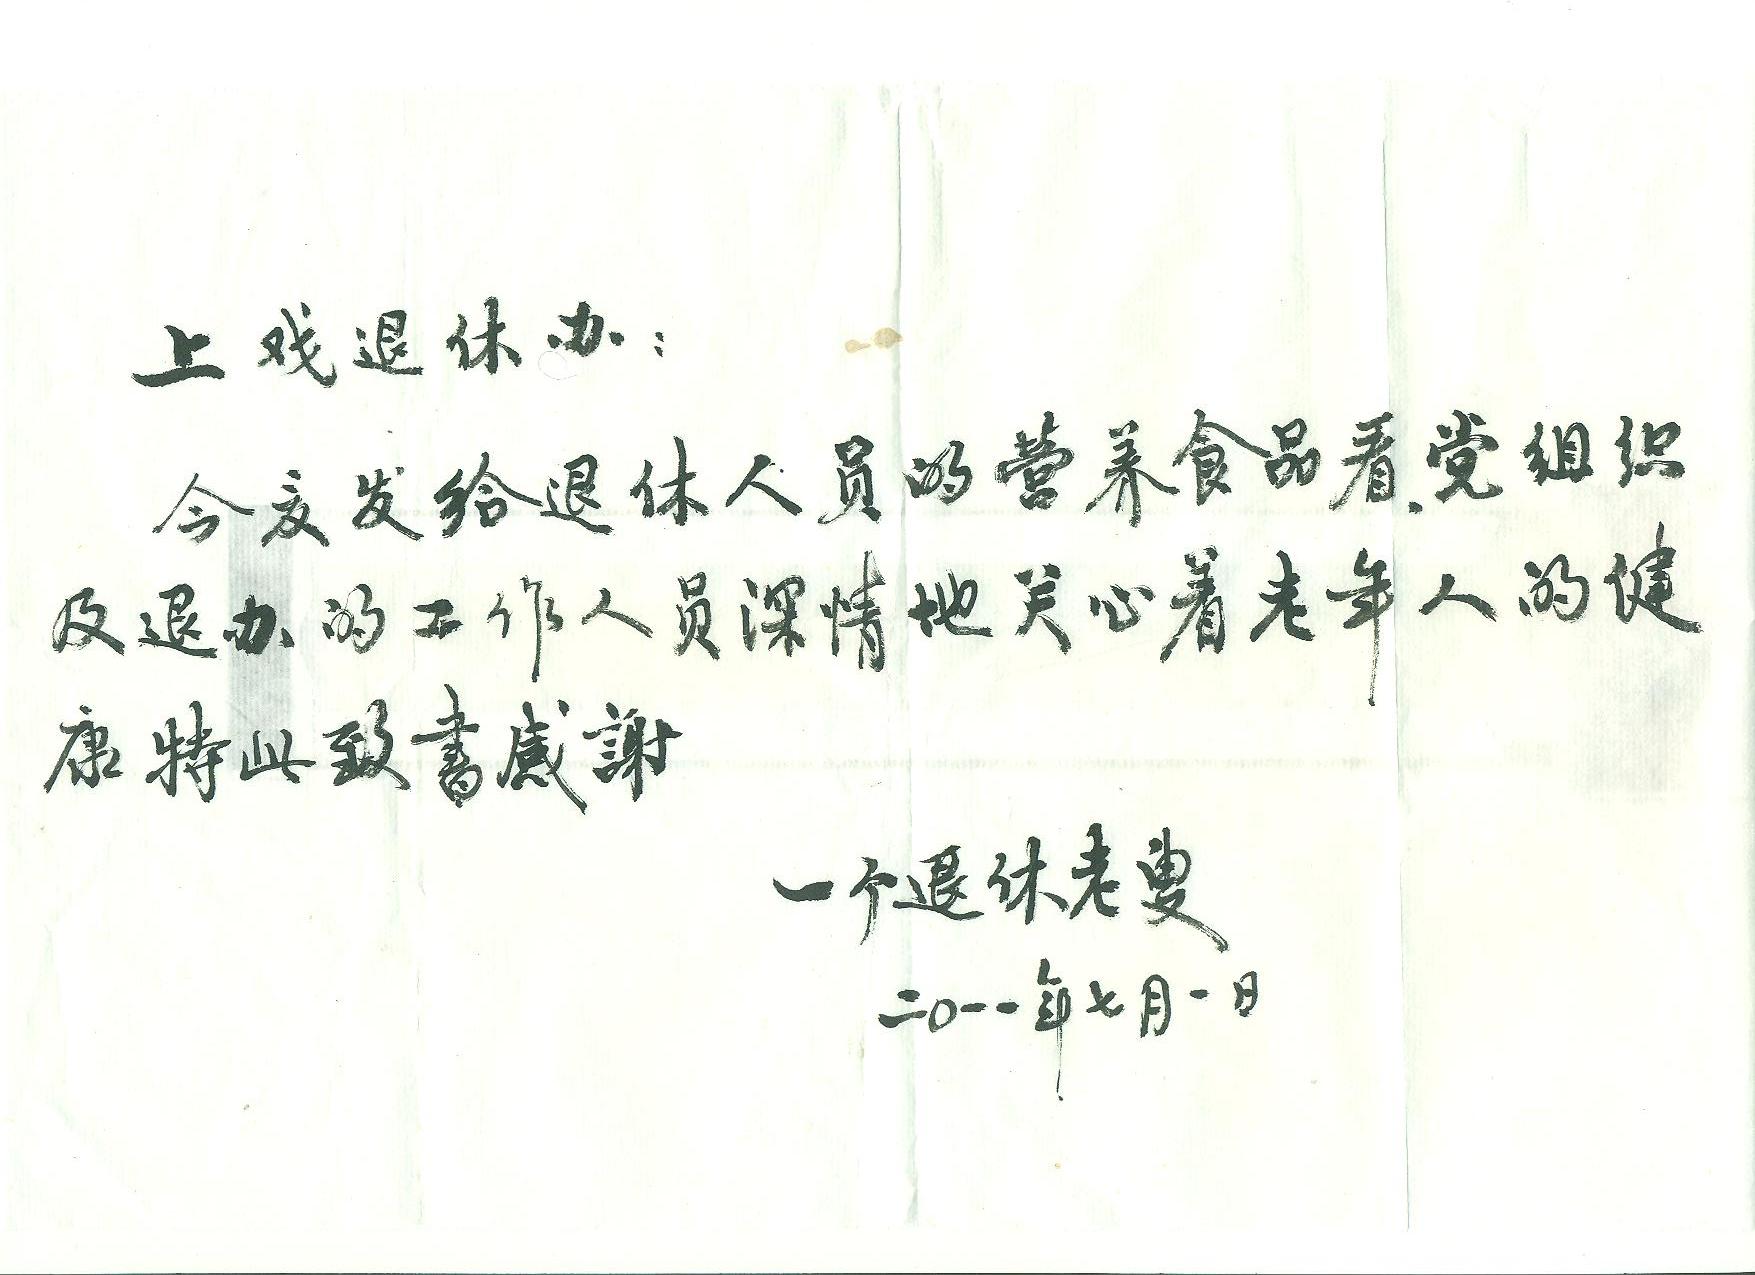 上戏退休办：
今夏发给退休人员的营养食品看、党组织
及退办的工作人员深情地关心着老年人的健
康特此致書感謝
一个退休老叟
二〇一一年七月一日